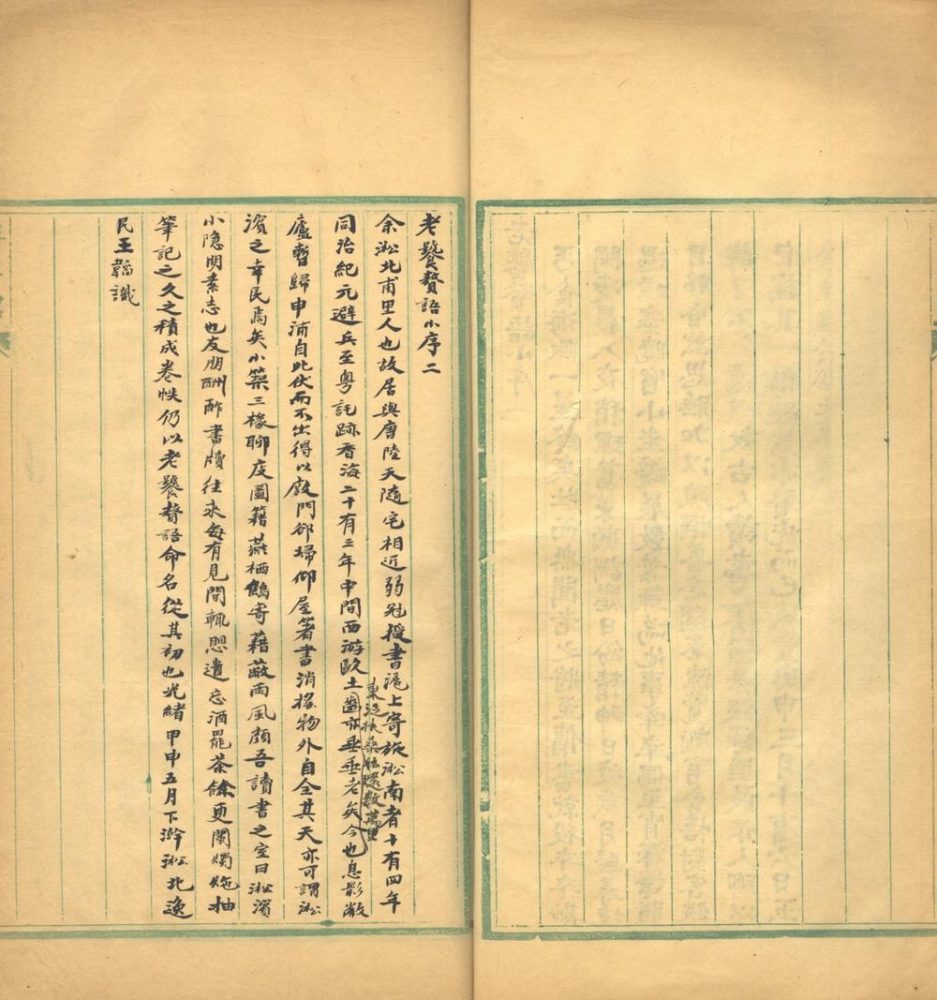 老饕贅語小序二
余淞北甫里人也故居與唐陸天隨宅相近弱冠授書滬上寄旅淞南者十有四年
同治紀元避兵至粵託跡香海二十有三年中間西游歐土東泛扶桑往還數萬里亦垂垂老矣今也息影敝
廬暫歸申浦自此伏而不出得以殷門卻埽仰屋箸書消搖物外自全其天亦可謂淞
濱之幸民焉矣小築三椽聊庋圖籍燕栖鷦寄藉蔽雨風顏吾讀書之室曰淞濱
小隱明素志也友朋酬酢書牘往來每有見聞輒愳遺忘酒罷茶餘更闌燭灺抽
筆記之久之積成卷帙仍以老饕贅語命名從其初也光緒甲申五月下澣淞北逸
民王韜識